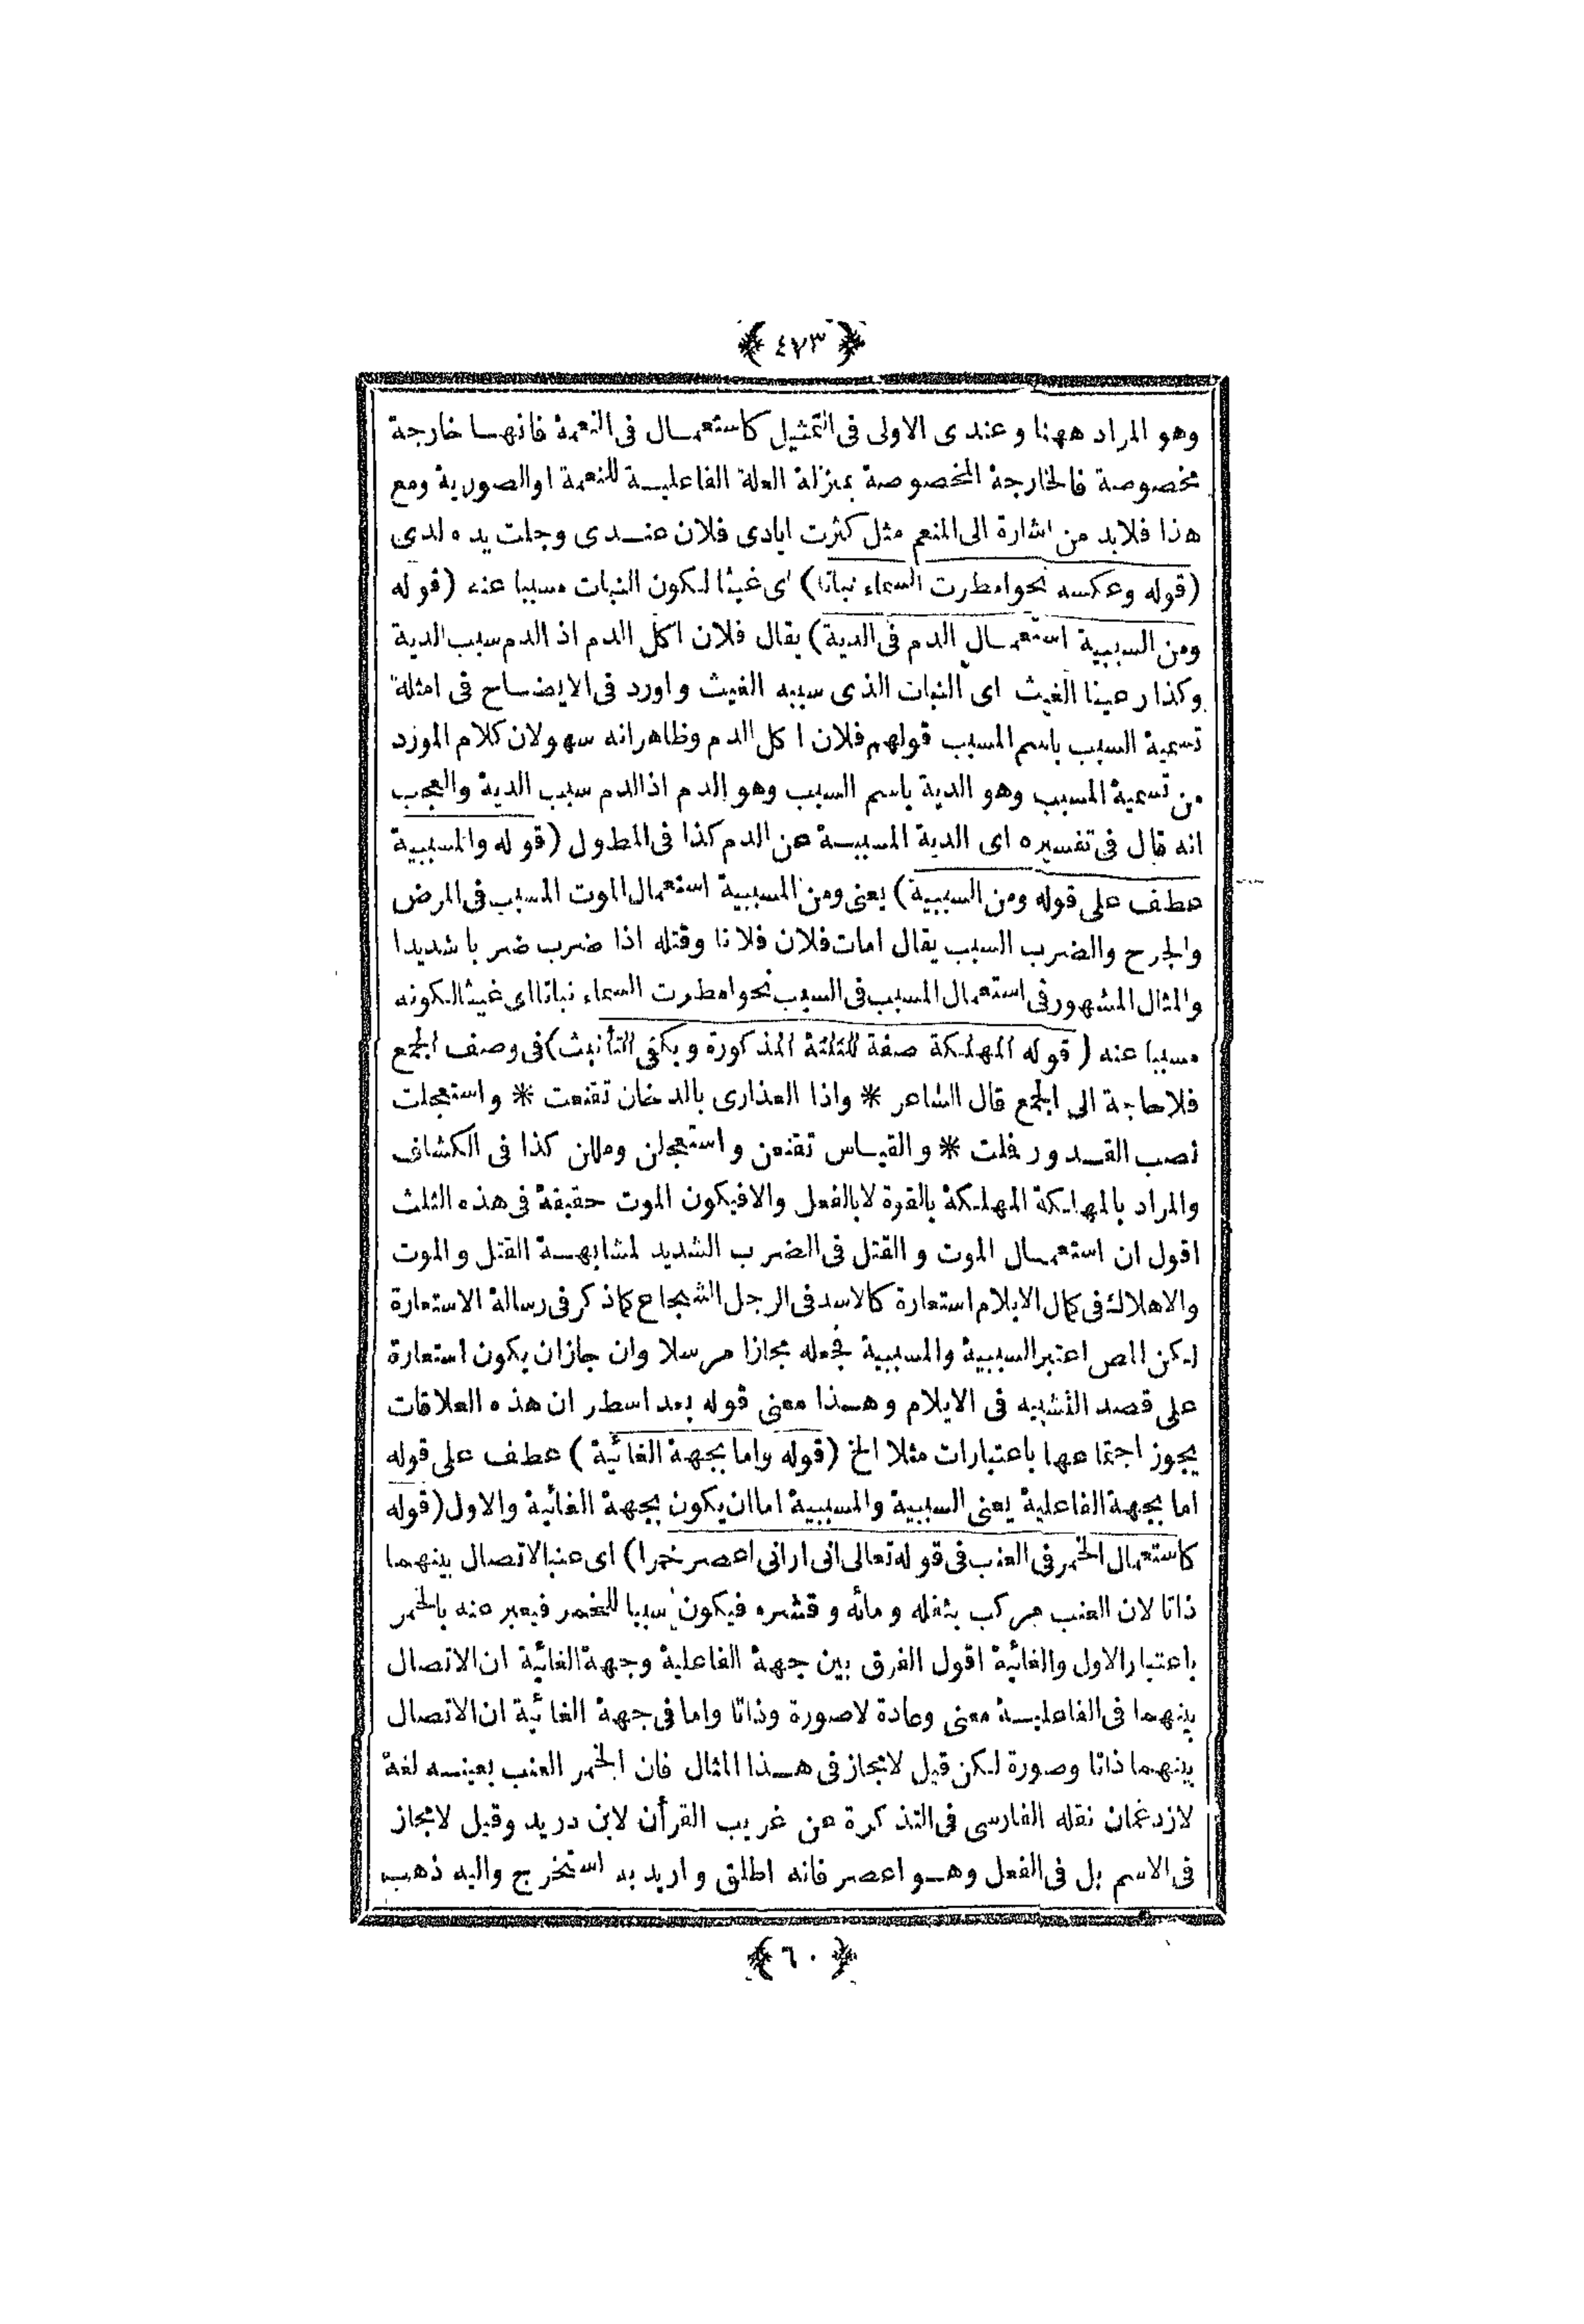 ﴿ ٤٧٣ ﴾
وهو المراد ههنا وعندى الاولى فى التمثيل كاستعمال فى النعمة فانها خارجة
مخصوصة فالخارجة المخصوصة بمنزلة العلة الفاعلية للنعمة او الصورية ومع
هذا فلابد من اشارة الى المنعم مثل كثرت ايادى فلان عندى وجلت يده لدى
(قوله وعكسه نحو امطرت السماء نباتا) اى غيثا لكون النبات مسببا عنه (قوله
ومن السببية استعمال الدم فى الدية) يقال فلان اكل الدم اذ الدم سبب الدية
وكذا رعينا الغيث اى النبات الذى سببه الغيث واورد فى الايضاح فى امثلة
تسمية السبب باسم المسبب قولهم فلان اكل الدم وظاهر انه سهو لان كلام المورد
من تسمية المسبب وهو الدية باسم السبب وهو الدم اذ الدم سبب الدية والعجب
انه قال فى تفسيره اى الدية المسببة عن الدم كذا فى المطول (قوله والمسببية
عطف على قوله ومن السببية) يعنى ومن المسببية استعمال الموت المسبب فى المرض
والجرح والضرب السبب يقال امات فلان فلانا وقتله اذا ضرب ضربا شديدا
والمثال المشهور فى استعمال المسبب فى السبب نحو امطرت السماء نباتا اى غيثا لكونه
مسببا عنه (قوله المهلكة صفة للثلثة المذكورة ويكفى التأنيث) فى وصف الجمع
فلا حاجة الى الجمع قال الشاعر * واذا العذارى بالدخان تقنعت * واستعجلت
نصب القدور فملت * والقياس تقنعن واستعجلن ومللن كذا فى الكشاف
والمراد بالمهلكة المهلكة بالقوة لا بالفعل والا فيكون الموت حقيقة فى هذه الثلث
اقول ان استعمال الموت والقتل فى الضرب الشديد لمشابهة القتل والموت
والاهلاك فى كمال الايلام استعارة كالاسد فى الرجل الشجاع كما ذكر فى رسالة الاستعارة
لكن المص اعتبر السببية والمسببية فجعله مجازا مرسلا وان جاز ان يكون استعارة
على قصد التشبيه فى الايلام وهذا معنى قوله بعد اسطر ان هذه العلاقات
يجوز اجتماعها باعتبارات مثلا الخ (قوله واما بجهة الغائية) عطف على قوله
اما بجهة الفاعلية يعنى السببية والمسببية اما ان يكون بجهة الغائية والاول (قوله
كاستعمال الخمر فى العنب فى قوله تعالى انى ارانى اعصر خمرا) اى عنبا لاتصال بينهما
ذاتا لان العنب مركب بثفله ومائه وقشره فيكون سببا للخمر فيعبر عنه بالخمر
باعتبار الاول والغائية اقول الفرق بين جهة الفاعلية وجهة الغائية ان الاتصال
بينهما فى الفاعلية معنى وعادة لا صورة وذاتا واما فى جهة الغائية ان الاتصال
بينهما ذاتا وصورة لكن قيل لا مجاز فى هذا المثال فان الخمر العنب بعينه لغة
لازد عمان نقله الفارسى فى التذكرة عن غريب القرأن لابن دريد وقيل لا مجاز
فى الاسم بل فى الفعل وهو اعصر فانه اطلق واريد به استخرج واليه ذهب
﴿ ٦٠ ﴾